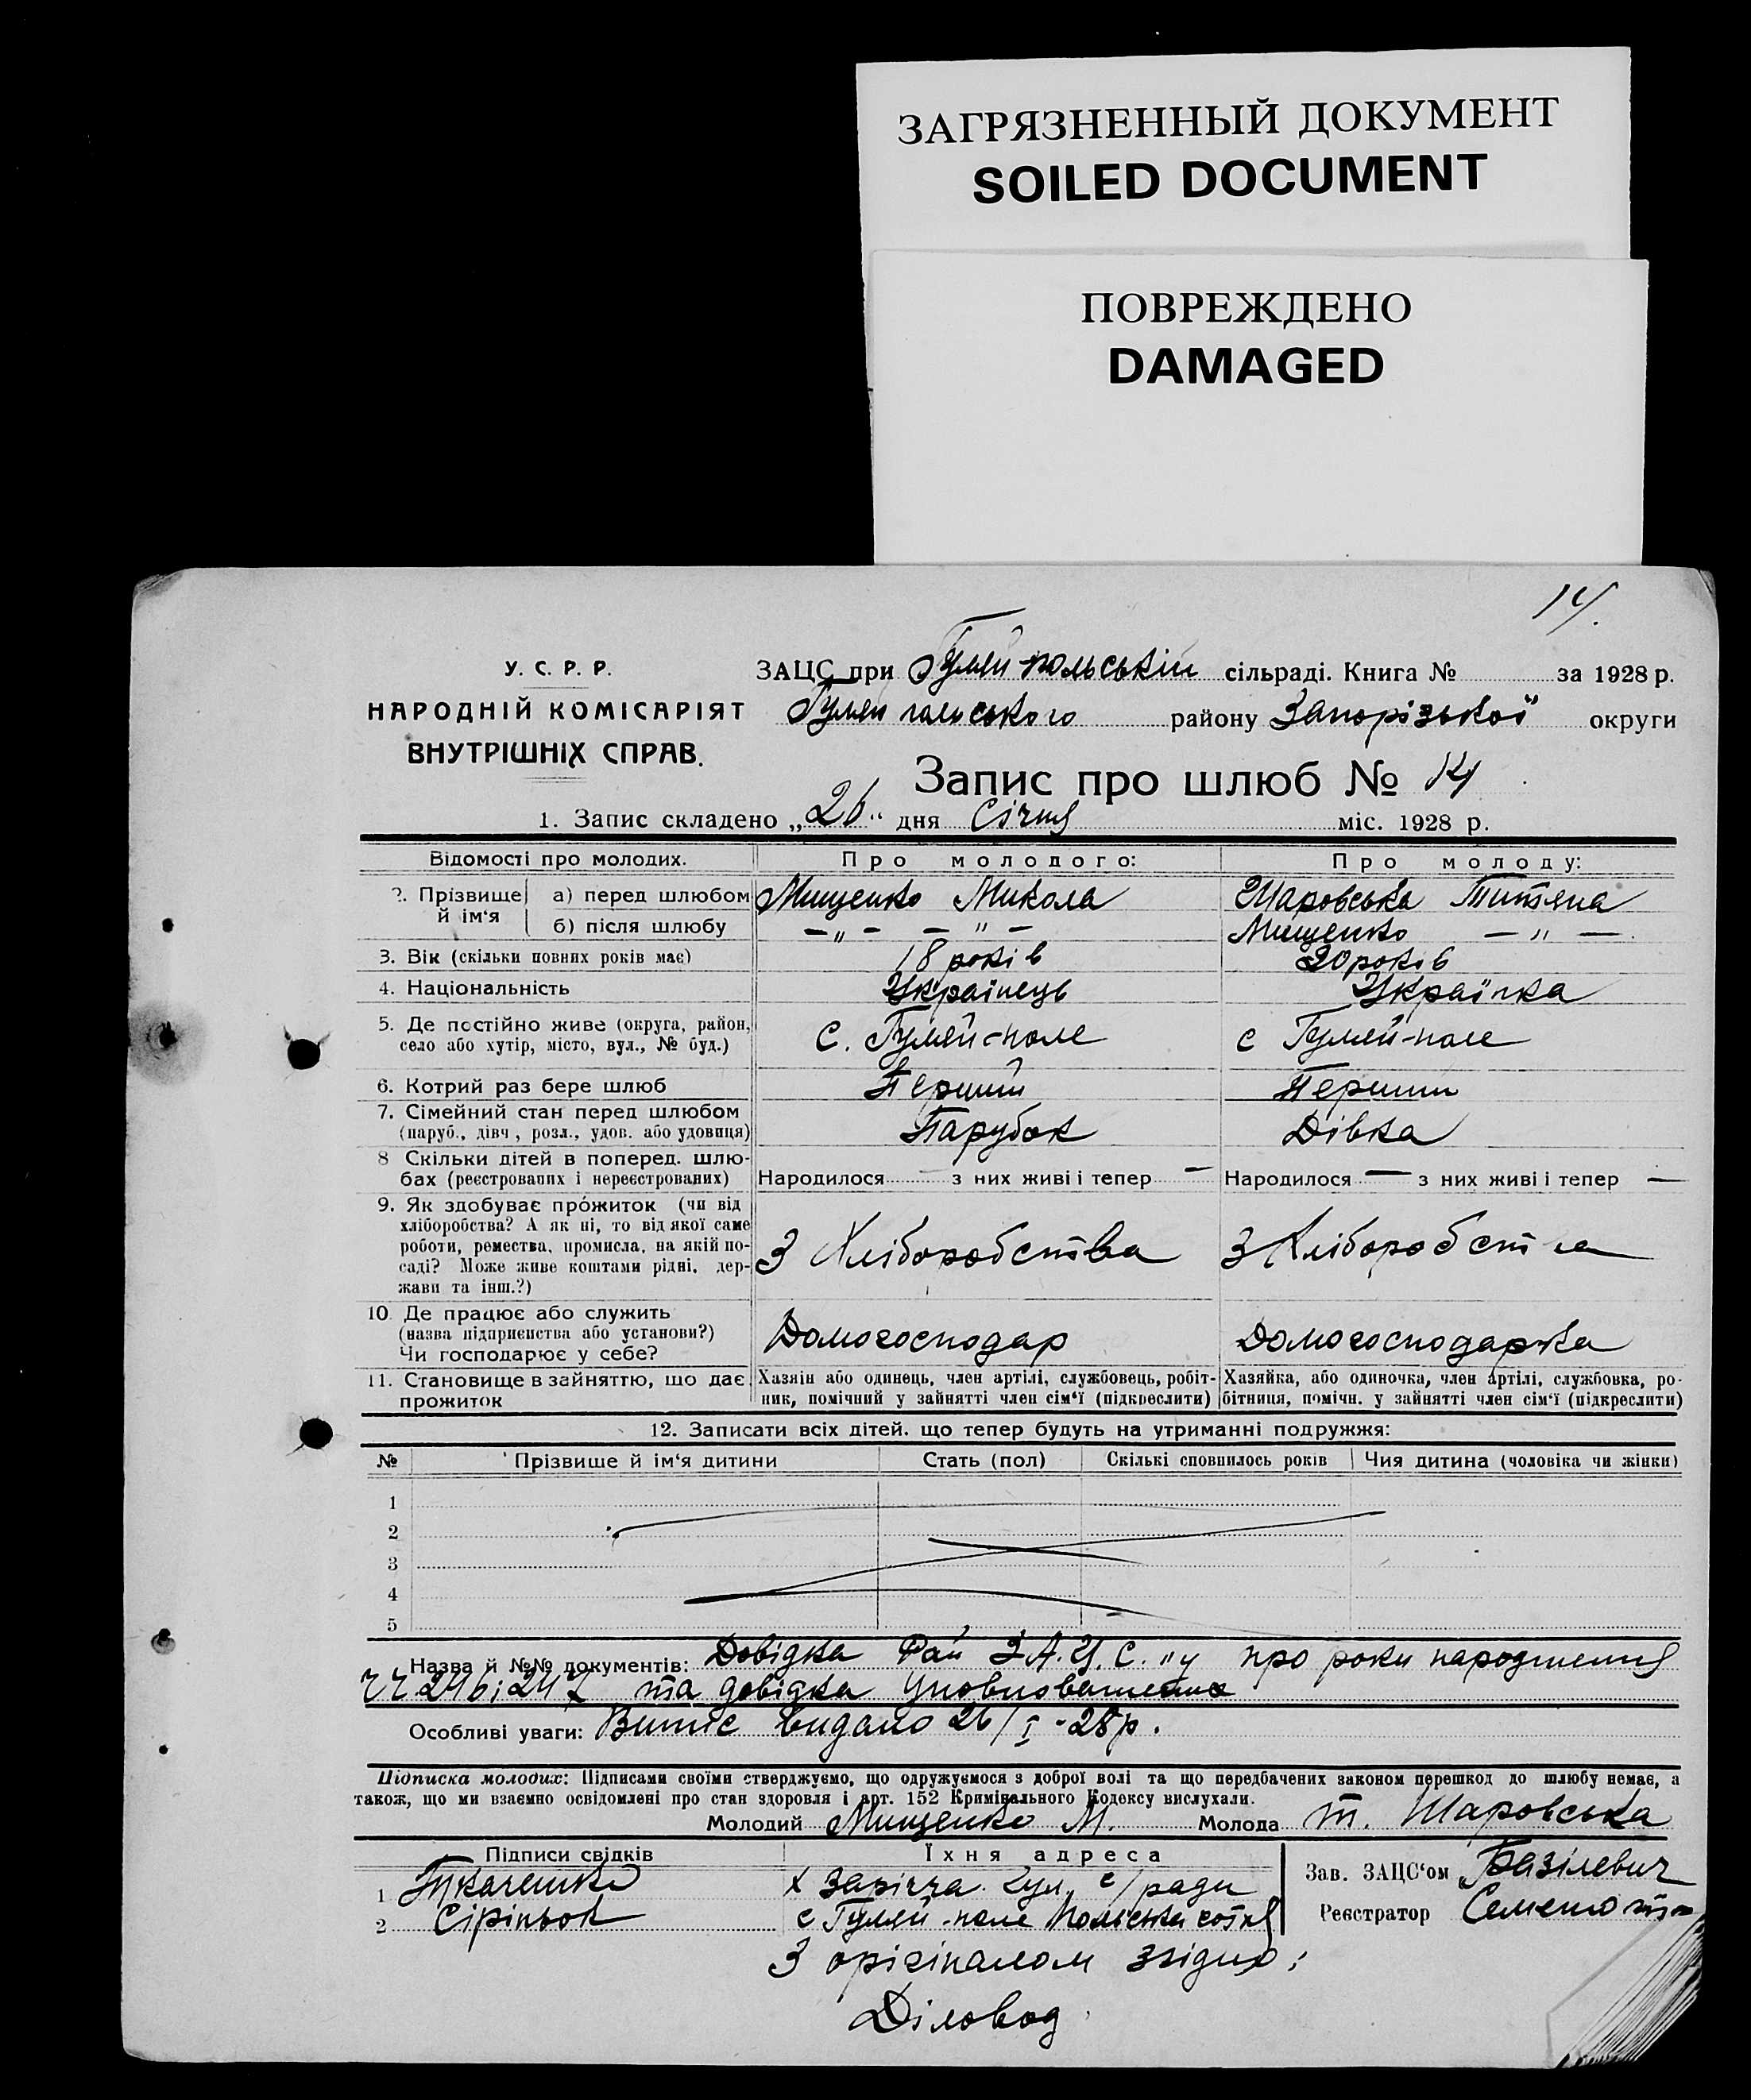 ЗАГРЯЗНЕННЫЙ ДОКУМЕНТ
SOILED DOCUMENT
ПОВРЕЖДЕНО
DAMAGED
14.
У. С. Р. Р.
НАРОДНІЙ КОМІСАРІЯТ
ВНУТРІШНІХ СПРАВ.
ЗАЦС при Гуляй-польській сільраді. Книга № за 1928 р.
Гуляй польського району Запорізької округи
Запис про шлюб № 14
1. Запис складено „26" дня Січня міс. 1928 р.
Відомості про молодих. Про молодого: Про молоду:
2. Прізвище й ім'я а) перед шлюбом Мищенко Микола Шаровська Титяна
б) після шлюбу — „ — — „ — Мищенко — „ —
3. Вік (скільки повних років має) 18 років 20 років
4. Національність Українець Українка
5. Де постійно живе (округа, район, село або хутір, місто, вул., № буд.) С. Гуляй-поле с Гуляй-поле
6. Котрий раз бере шлюб Перший Перший
7. Сімейний стан перед шлюбом (паруб., дівч., розл., удов. або удовиця) Парубок Дівка
8 Скільки дітей в поперед. шлюбах (реєстрованих і нереєстрованих) Народилося — з них живі і тепер — Народилося — з них живі і тепер —
9. Як здобуває прóжиток (чи від хліборобства? А як ні, то від якої саме роботи, ремества, промисла, на якій посаді? Може живе коштами рідні, держави та інш.?) З Хліборобства З Хліборобства
10. Де працює або служить (назва підприємства або установи?) Чи господарює у себе? Домогосподар Домогосподарка
11. Становище в зайняттю, що дає прожиток Хазяїн або одинець, член артілі, службовець, робітник, помічний у зайнятті член сім'ї (підкреслити) Хазяйка, або одиночка, член артілі, службовка, робітниця, помічн. у зайнятті член сім'ї (підкреслити)
12. Записати всіх дітей, що тепер будуть на утриманні подружжя:
№ Прізвище й ім'я дитини Стать (пол) Скількі сповнилось років Чия дитина (чоловіка чи жінки)
1
2
3
4
5
Назва й №№ документів: Довідка Рай З.А.Ц.С."у про роки народження
ч ч 246; 247 та довідка Уповноважених
Особливі уваги: Витяг видано 26/I-28р.
Підписка молодих: Підписами своїми стверджуємо, що одружуємося з доброї волі та що передбачених законом перешкод до шлюбу немає, а
також, що ми взаємно освідомлені про стан здоровля і арт. 152 Кримінального Кодексу вислухали.
Молодий Мищенко М. Молода Т. Шаровська
Підписи свідків Їхня адреса Зав. ЗАЦС'ом Базілевич
1 х Зарічча Гул. с/ради
2 Сіріньок с Гуляй-поле Польська сотня Реєстратор
З орігіналом згідно:
Діловод